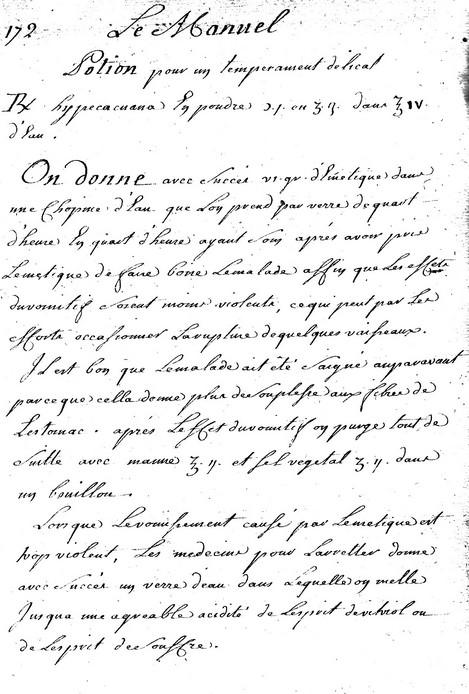 172 Le Manuel
Potion pour un temperament delicat
℞ hypecacuana En poudre ou dans ℥ IV.
d'Eau.
On donne avec Succés vi. gr. d'Emetique dans
une Chopine d'Eau que Lon prend par verre de quart
d'heure En quart d'heure ayant Soin aprés avoir pris
Lemetique de faire boire Lemalade affin que Les effets
duvomitif Soient moins violents, cequi peut par Les
efforts occasionner Larupture dequelques vaisseaux.
Il est bon que Lemalade ait été Saigné auparavant
parceque cella donne plus desouplesse aux fibres de
Lestomac. aprés Leffet duvomitif on purge tout de
Suitte avec manne ℥. ij. et Sel vegetal ʒ. ij. dans
un bouillon.
Lorsque Levomissement causé par Lemetique est
trop violent, Les medecins pour Larretter donne
avec Succés un verre d'eau dans Lequelle on melle
Jusqua une agreable acidité de Lesprit devitriol ou
de Lesprit de Souffre.